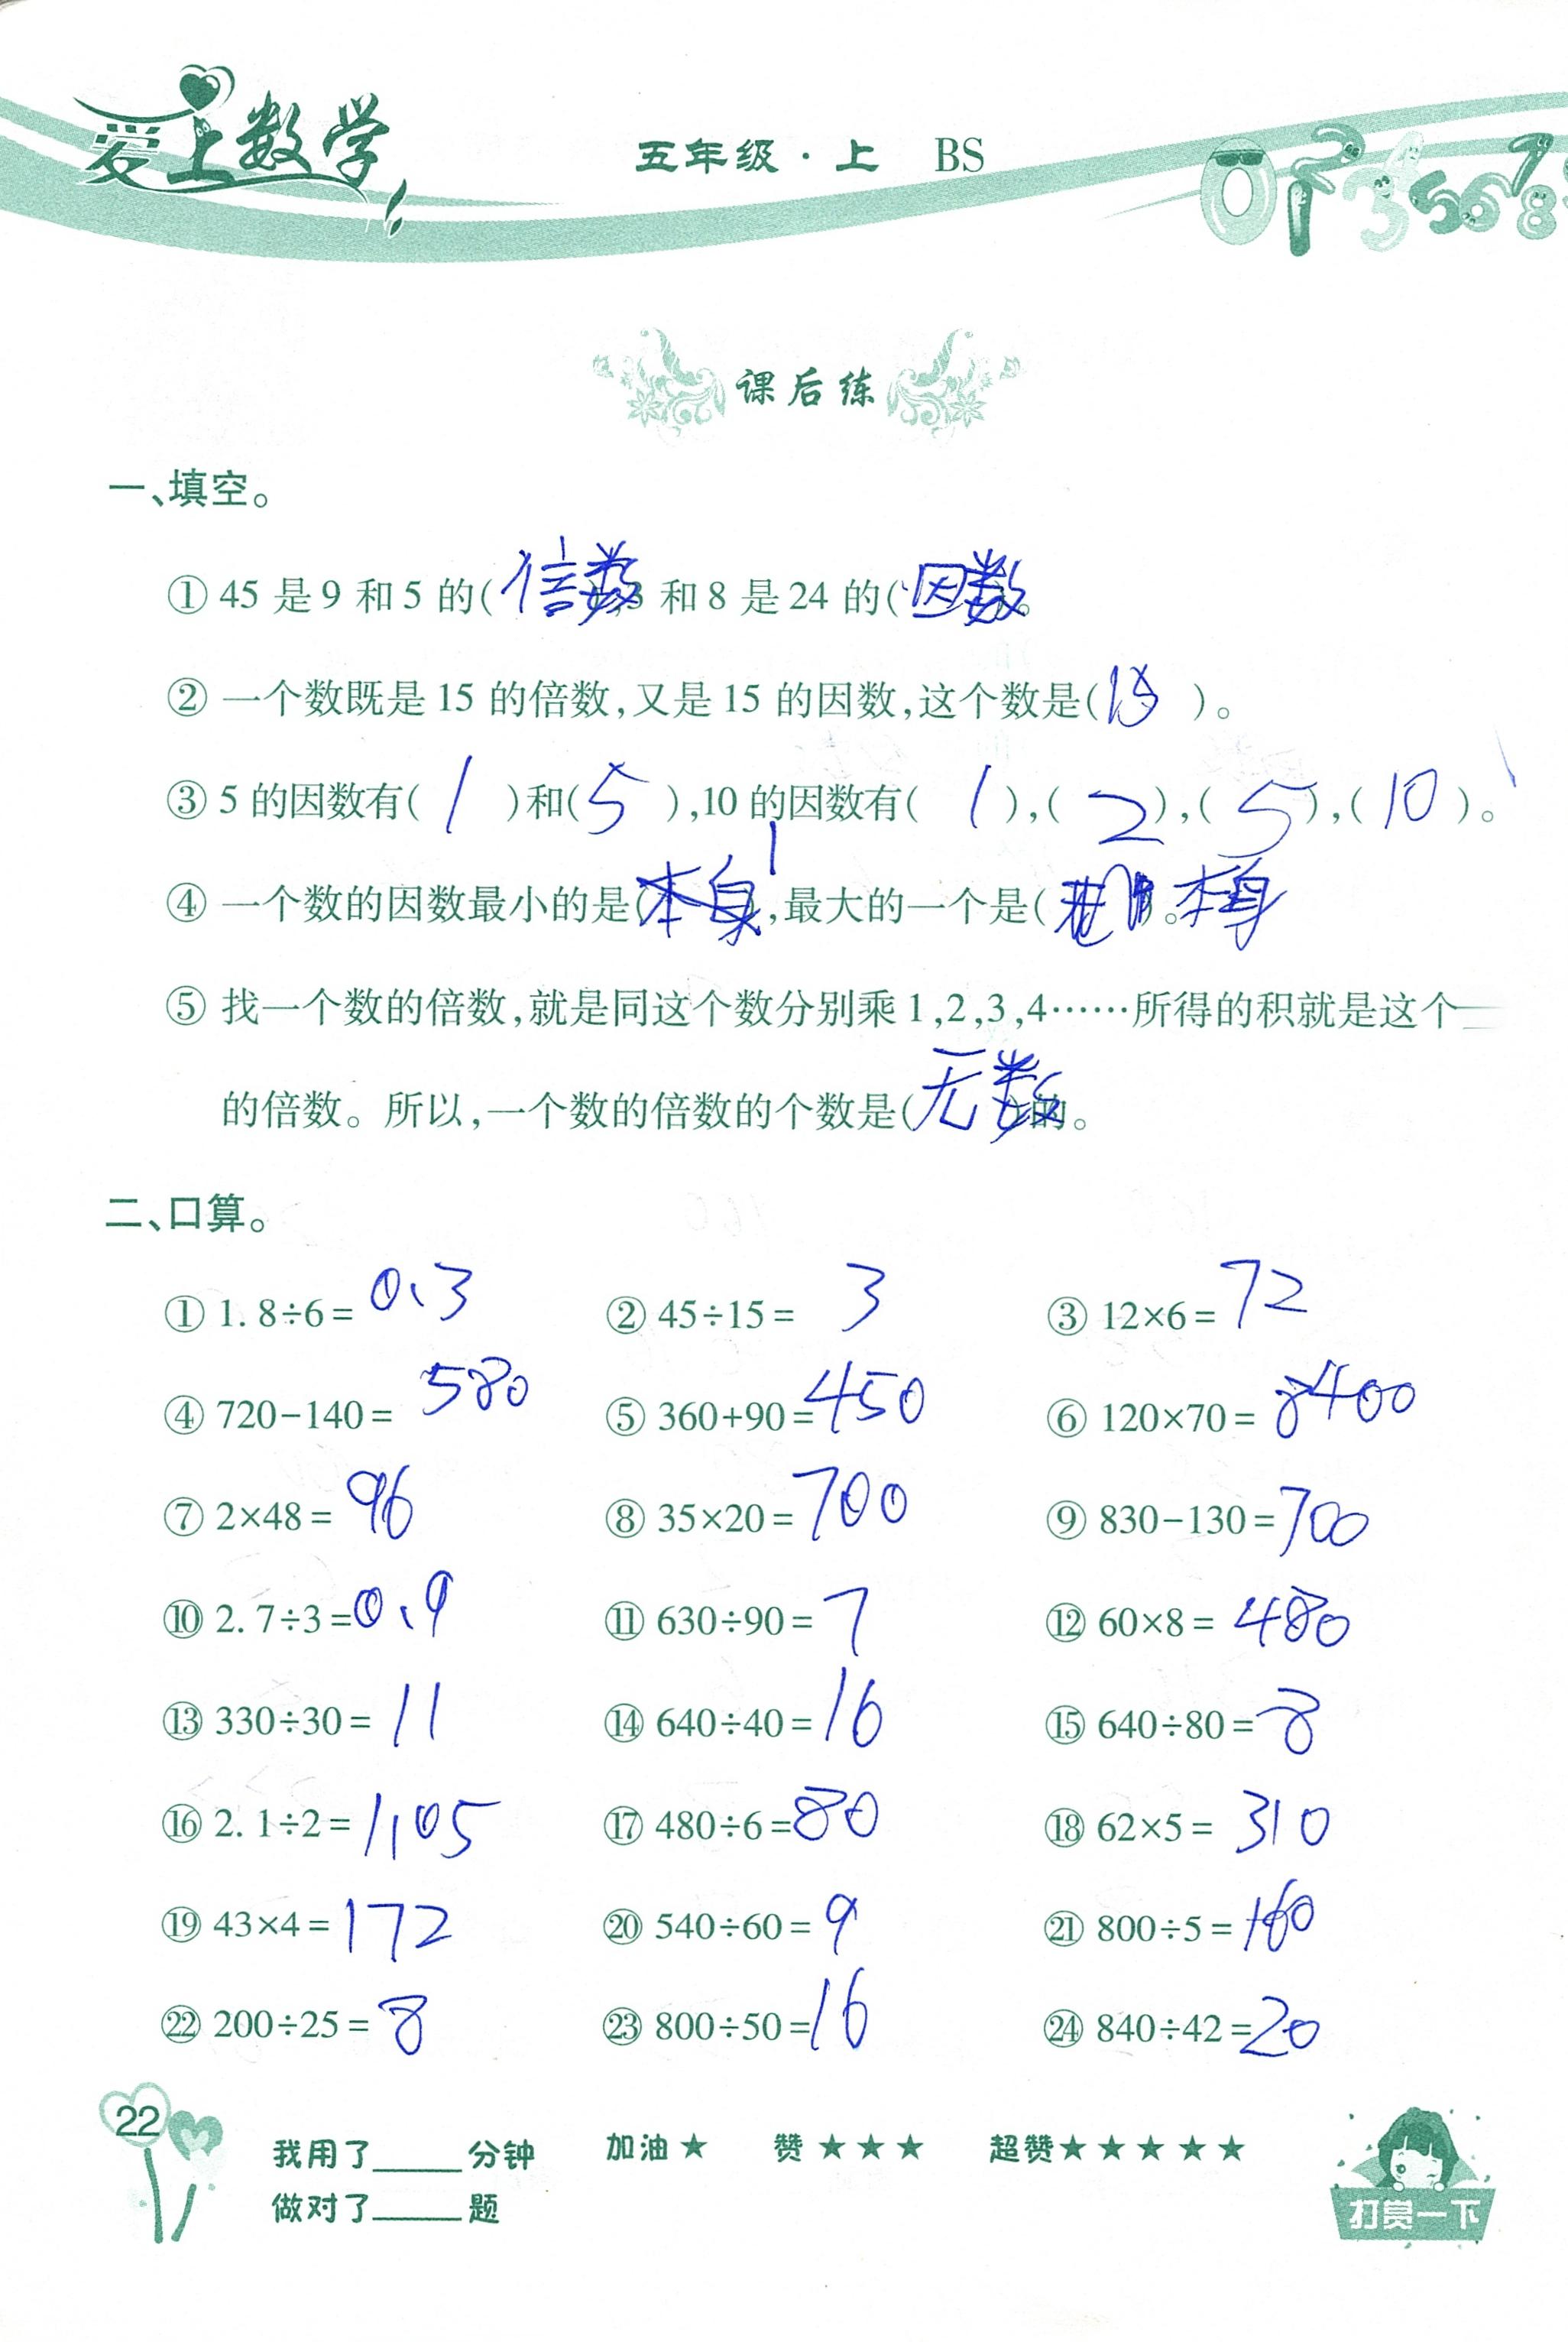 爱上数学 五年级·上 BS
课后练
一、填空。
① 45 是 9 和 5 的(倍数),3 和 8 是 24 的(因数)。
② 一个数既是 15 的倍数,又是 15 的因数,这个数是(15)。
③ 5 的因数有(1)和(5),10 的因数有(1),(2),(5),(10)。
④ 一个数的因数最小的是(1),最大的一个是(本身)。
⑤ 找一个数的倍数,就是同这个数分别乘 1,2,3,4……所得的积就是这个
的倍数。所以,一个数的倍数的个数是(无数)的。
二、口算。
① 1.8÷6=0.3 ② 45÷15=3 ③ 12×6=72
④ 720-140=580 ⑤ 360+90=450 ⑥ 120×70=8400
⑦ 2×48=96 ⑧ 35×20=700 ⑨ 830-130=700
⑩ 2.7÷3=0.9 ⑪ 630÷90=7 ⑫ 60×8=480
⑬ 330÷30=11 ⑭ 640÷40=16 ⑮ 640÷80=8
⑯ 2.1÷2=1.05 ⑰ 480÷6=80 ⑱ 62×5=310
⑲ 43×4=172 ⑳ 540÷60=9 ㉑ 800÷5=160
㉒ 200÷25=8 ㉓ 800÷50=16 ㉔ 840÷42=20
22
我用了____分钟 加油★ 赞★★★ 超赞★★★★★
做对了____题
打赏一下